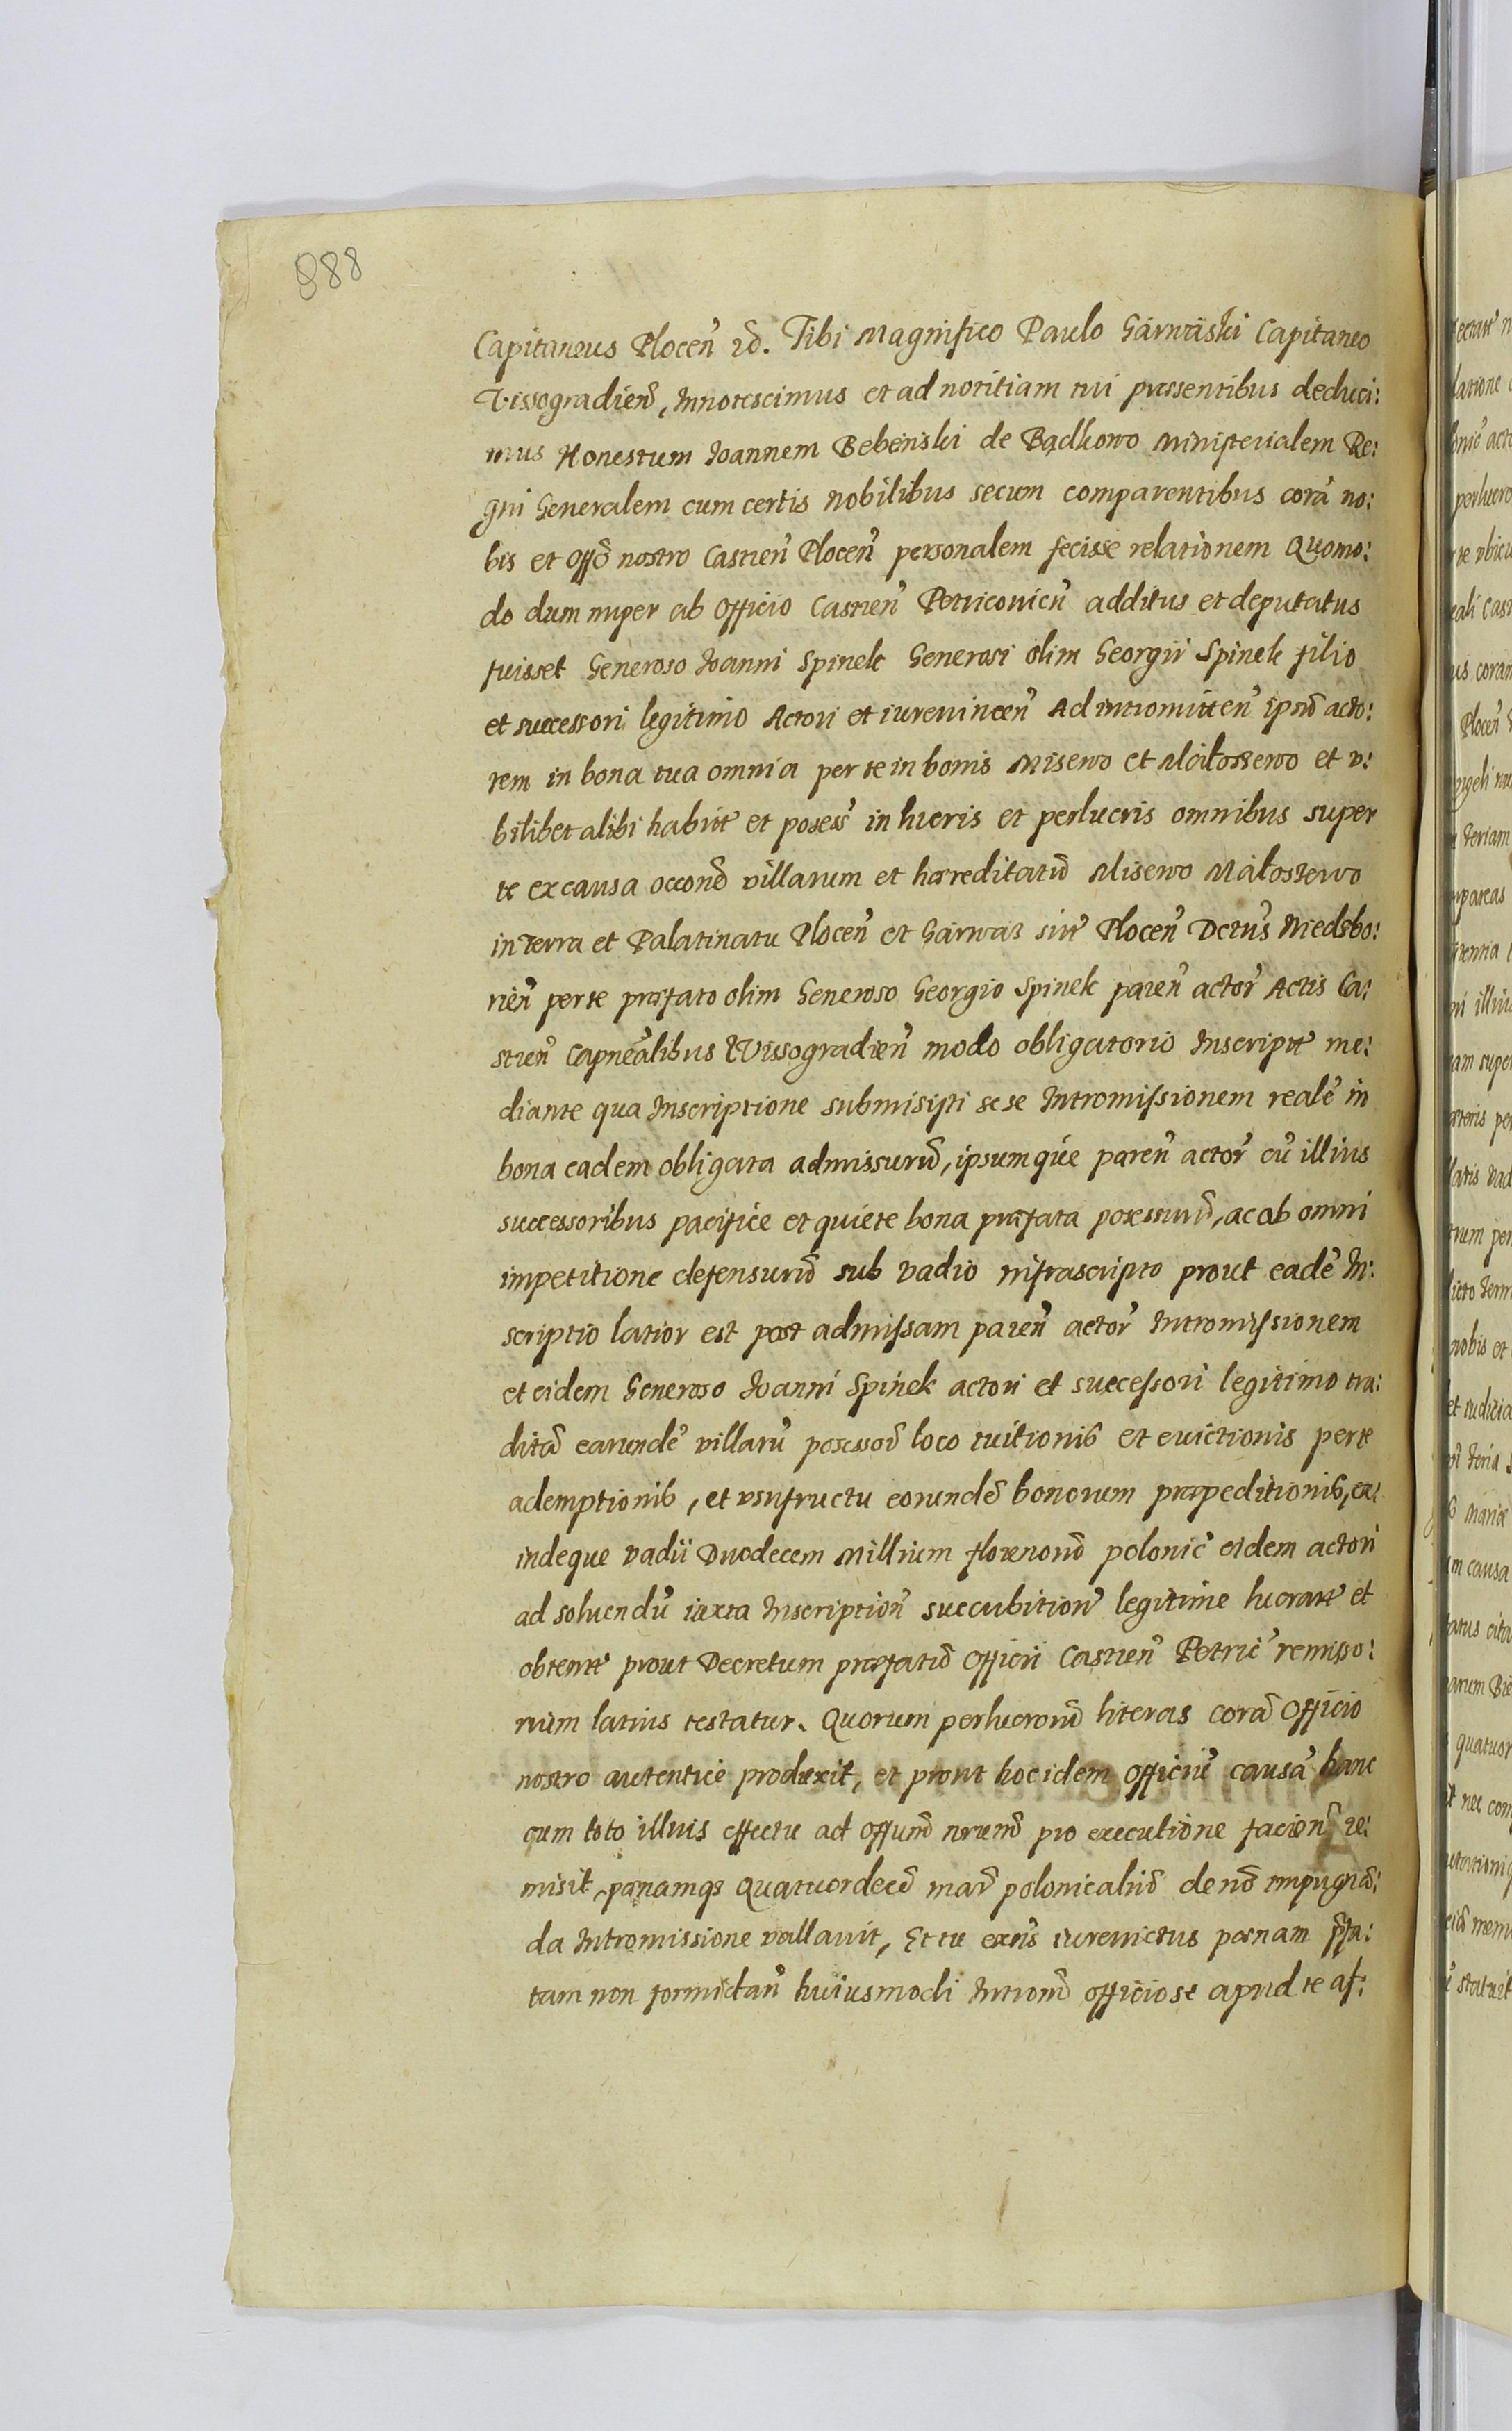 888
Capitaneus Plocen̄ ꝛc̄. Tibi Magnifico Paulo Garwaski Capitaneo
Vissogradien̄, Innotescimus et ad notitiam tui præsentibus deduci:
mus Honestum Ioannem Bebenski de Bądkowo Ministerialem Re:
gni Generalem cum certis Nobilibus secum comparentibus corā no:
bis et Offō nostro Castren̄ Plocen̄ personalem fecisse relationem Quomo:
do dum nuper ab Officio Castren̄ Petriconien̄ additus et deputatus
fuisset Generoso Ioanni Spinek Generosi olim Georgii Spinek filio
et successori legitimo Actori et iurevincen̄ Ad intromitten̄ ipsū acto:
rem in bona tua omnia per te in bonis Misewo et Małossewo et v:
bilibet alibi habit̄ et posess̄ in lucris et perlucris omnibus super
te ex causa occonē villarum et hæreditatū Misewo Małostewo
in terra et Palatinatu Plocen̄ et Garwas sit̄ Plocen̄ Dctus̄ Niedzbo:
rien̄ per te præfato olim Generoso Georgio Spinek paren̄ actor̄ Actis Ca:
stren̄ Capnēalibus Vissogradien̄ modo obligatorio Inscript̄ me:
diante qua Inscriptione submisisti sese Intromissionem realē in
bona eadem obligata admissurū, ipsumque paren̄ actor̄ cū illius
successoribus pacifice et quiete bona præfata posessurū, ac ab omni
impetitione defensurū sub vadio infrascripto prout eadē In:
scriptio latior est post admissam paren̄ actor̄ Intromissionem
et eidem Generoso Ioanni Spinek actori et successori legitimo tra:
ditā earundē villarū posessoē loco tuitionis et evictionis per te
ademptionis, et usufructu eorundē bonorum præpeditionis, ex:
indeque vadii Duodecem Millium florenorū polonic̄ eidem actori
ad soluendū iuxta Inscription̄ succubitione legitime lucrat̄ et
obtent̄ prout Decretum præfatū Officii Castren̄ Petric̄ remisso:
rium latius testatur. Quorum perlucrorū literas corā Officio
nostro autentice produxit, et prout hoc idem Officiū causā hanc
cum toto illius effectu ad Offum̄ nrum̄ pro executione facien̄ re:
misit, pænamqȝ Quatuordecē mar̄ polonicaliū de nō impugnā:
da Intromissione vallavit, Et tu exn̄s iurevictus pænam p̄fa:
tam non formidan̄ huiusmodi Introm̄ officiose apud te af: